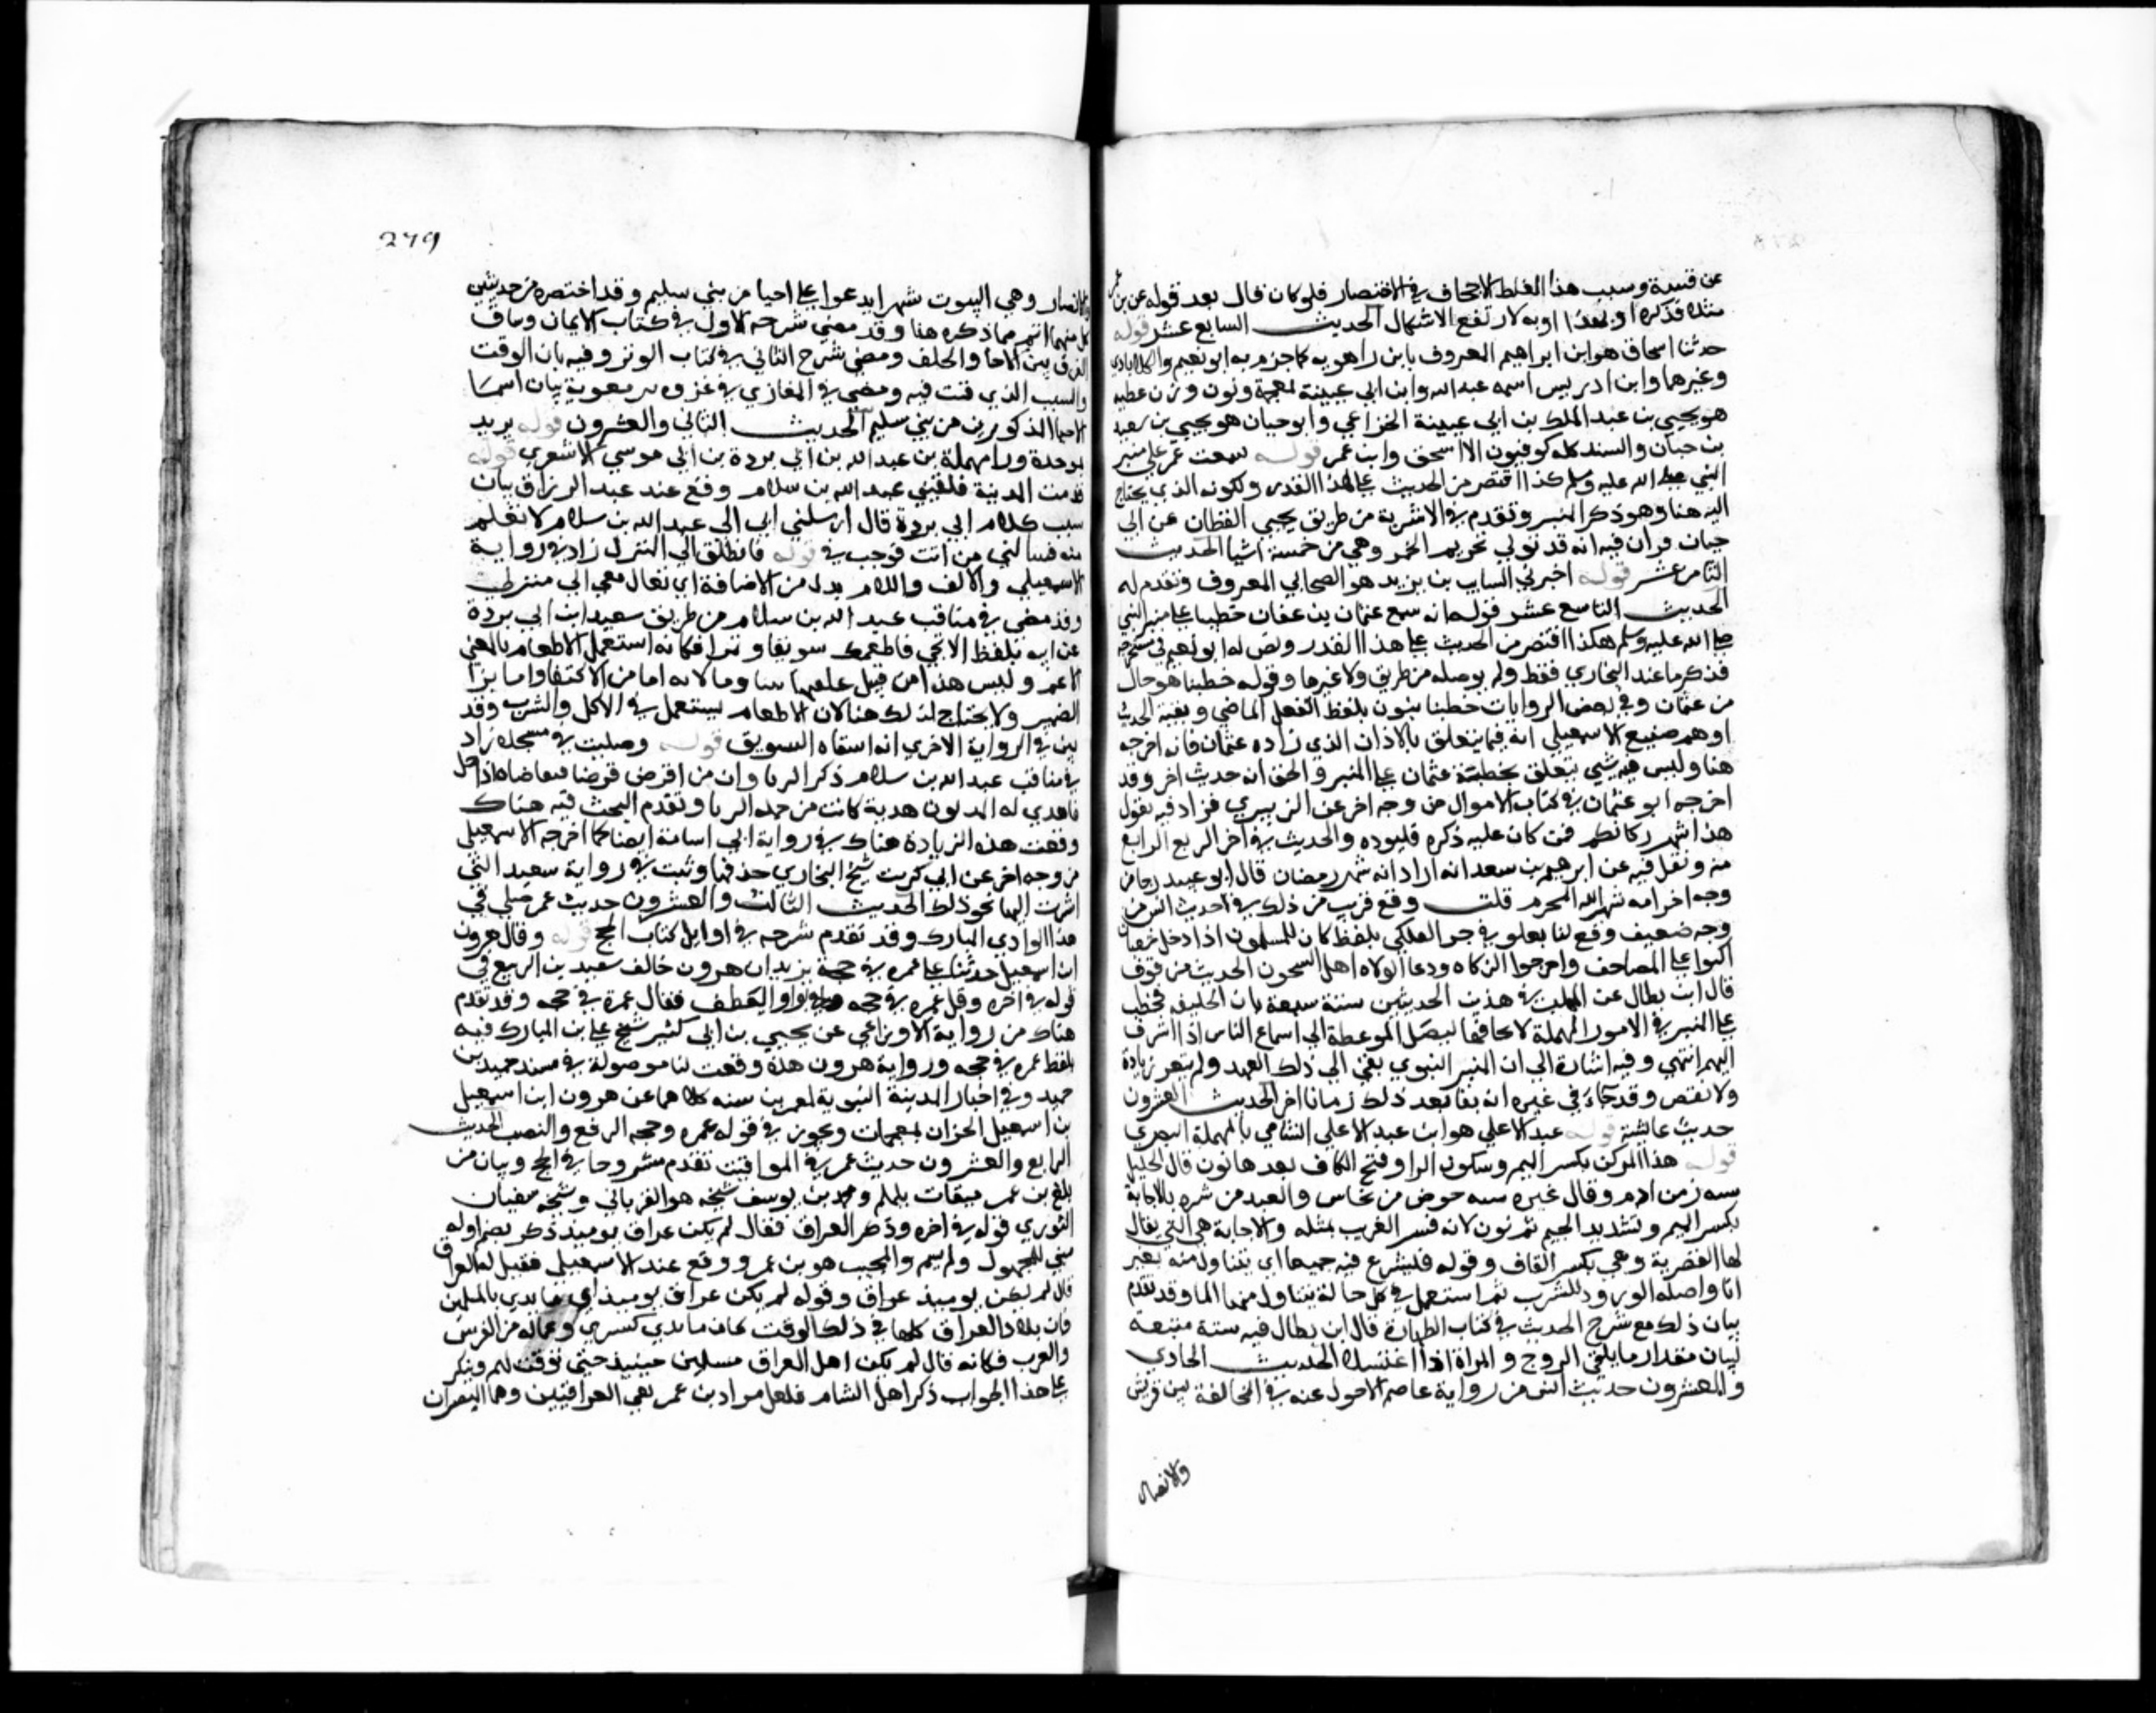 عن قتيبة وسبب هذا الغلط الاجحاف في الاختصار فلو كان قال بعد قوله عن بن عمر
مثله فذكره او بهذا او به لارتفع الاشكال الحديث السابع عشر قوله
حدثنا اسحاق هو ابن ابراهيم المعروف بابن راهويه كما جزم به ابو نعيم والكلاباذي
وغيرهما وابن ادريس اسمه عبد الله وابن ابي عيينة لمعجمة ونون وزن عطيه
هو يحيي بن عبد الملك بن ابي عيينة الخزاعي وابو حيان هو يحيي بن سعيد
بن حيان والسند كله كوفيون الا اسحق وابن عمر قوله سمعت عمر علي منبر
النبي صلى الله عليه وسلم كذا اقتصر من الحديث علي هذا القدر ولكونه الذي يحتاج
اليه هنا وهو ذكر المنبر وتقدم في الاشربة من طريق يحيي القطان عن ابي
حيان فزان فيه انه قد نزل تحريم الخمر وهي من خمسة اشيا الحديث
الثامن عشر قوله اخبرني السايب بن يزيد هو الصحابي المعروف وتقدم له
الحديث التاسع عشر قوله انه سمع عثمان بن عفان خطيبا علي منبر النبي
صلى الله عليه وسلم هكذا اقتصر من الحديث علي هذا القدر ونص له ابو نعيم في مستخرجه
فذكر ما عند البخاري فقط ولم يوصله من طريق ولا غيرها وقوله خطيبا هو حال
من عثمان وفي بعض الروايات خطبنا بنون بلفظ الفعل الماضي وبقية الحديث
اوهم صنيع الاسمعيلي انه فيما يتعلق بالاذان الذي زاده عثمان فانه اخرجه
هنا وليس فيه شيي يتعلق بخطبة عثمان علي المنبر والحق انه حديث اخر وقد
اخرجه ابو عثمان في كتاب الاموال من وجه اخر عن الزهيري فزاد فيه يقول
هذا شهر زكاتكم فمن كان عليه ذكره فليوده والحديث في اخر الربع الرابع
منه ونقل فيه عن ابرهيم بن سعد انه اراد انه شهر رمضان قال ابو عبيد وجا من
وجه اخر انه شهر الله المحرم قلت وقع قريب من ذلك في حديث انس من
وجه ضعيف وقع لنا بعلو في جز الفلكي بلفظ كان المسلمون اذا دخل شعبان
اكبوا علي المصاحف واخرجوا الزكاه ودعا الولاه اهل السجون الحديث من قوف
قال ابن بطال عن المهلب في هذين الحديثين سنة متبعة بان الخليفة يخطب
علي المنبر في الامور المهملة لا يخافيها ليصل الموعظة الي اسماع الناس اذا اشرف
اليهم انتهي وفيه اشارة الي ان المنبر النبوي بقي الي ذلك العهد ولم يتغير بزيادة
ولا نقص وقد جاء في غيره انه بقي بعد ذلك زمانا اخر الحديث العشرون
حديث عايشة قوله عبد الاعلي هو ابن عبد الاعلي الشامي بالمهملة البصري
قوله هذا المركن بكسر الميم وسكون الرا وفتح الكاف بعدها نون قال الخليل
شبه تور من ادم وقال غيره شبه حوض من نحاس وابعد من فسره بالاجانة
بكسر الهمزة وتشديد الجيم ثم نون لانه فسر الغريب بمثله والاجانة هي التي يقال
لها القصرية وهي بكسر القاف وقوله فنشرع فيه جميعا اي نتناول منه بغير
انا واصله الورود للشرب ثم استعمل في كل حالة يتناول منها الما وقد تقدم
بيان ذلك مع شرح الحديث في كتاب الطهارة قال ابن بطال فيه سنة متبعة
لبيان مقدار ما يلقي الزوج والمراة اذا اغتسلا الحديث الحادي
والعشرون حديث انس من رواية عاصم الاحول عنه في المخالفة بين قريش
والانصار
279
والانصار وهي البيوت شهرا يدعوا علي احيا من بني سليم وقد اختصره من حديثين
كل منهما اتم مما ذكره هنا وقد مضي شرح الاول في كتاب الايمان وبيان
الفرق بين الاخا والحلف ومضي شرح الثاني في كتاب الوتر وفيه بان الوقت
والسبب الذي قنت فيه ومضي في المغازي في غزوة بير معوية بيان اسما
الاحيا المذكورين من بني سليم الحديث الثاني والعشرون قوله بريد
بموحدة ورا مهملة بن عبد الله بن ابي بردة بن ابي موسي الاشعري قوله
قدمت المدينة فلقيني عبد الله بن سلام وقع عند عبد الرزاق بيان
سبب كلام ابي بردة قال ارسلني ابي الي عبد الله بن سلام لاتعلم
منه فسالني من انت فرحب بي قوله فانطلق الي المنزل زاد في رواية
الاسمعيلي والالف واللام بدل من الاضافة اي تعال معي الي منزلي
وقد مضي في مناقب عبد الله بن سلام من طريق سعيد ابن ابي بردة
عن ابيه بلفظ الا تجي فاطعمك سويقا وتمرا فكانه استعمل الاطعام بالمعني
الاعم وليس هذا من قبيل علفتها تبنا وما لانه اما من الاكتفا واما بزا
الضمير ولا يحتاج لذلك هنا لان الاطعام يستعمل في الاكل والشرب وقد
بين في الرواية الاخري انه اسقاه السويق قوله وصليت في مسجده زاد
في مناقب عبد الله بن سلام ذكر الربا وان من اقرض قرضا فتقاضاه اذا حل
فاهدي له المديون هدية كانت من جملة الربا وتقدم البحث فيه هناك
وقعت هذه الزيادة هناك في رواية ابي اسامة ايضا كما اخرجه الاسمعيلي
من وجه اخر عن ابي كريب شيخ البخاري حذفها وثبت في رواية سعيد التي
اشرت اليها نحو ذلك الحديث الثالث والعشرون حديث عمر صلي في
هذا الوادي المبارك وقد تقدم شرحه في اوايل كتاب الحج قوله وقال هرون
ابن اسمعيل حدثنا علي عمره في حجة يريد ان هرون خالف سعيد بن الربيع في
قوله في اخره وقل عمره في حجه بواو العطف فقال عمرة في حجه وقد تقدم
هناك من رواية الاوزاعي عن يحيي بن ابي كثير شيخ علي بن المبارك فيه
بلفظ عمره في حجه ورواية هرون هذه وقعت لنا موصولة في مسند حميد بن
حميد وفي اخبار المدينة النبوية لعمر بن سنه كلاهما عن هرون ابن اسمعيل
بن اسمعيل الخزان لمعجمات ويجوز في قوله عمره وحجه الرفع والنصب الحديث
الرابع والعشرون حديث عمر في المواقيت تقدم مشروحا في الحج وبيان من
بلغ بن عمر ميقات يلملم ومحمد بن يوسف شيخه هو الفريابي وشيخه سفيان
الثوري قوله في اخره وذكر العراق فقال لم يكن عراق يوميذ ذكر بضم اوله
مبني للمجهول ولم يسم والمجيب هو بن عمر ووقع عند الاسمعيلي فقيل له العراق
قال لم يكن يوميذ عراق وقوله لم يكن عراق يوميذ اي بايدي المسلمين
فان بلاد العراق كلها في ذلك الوقت كان بايدي كسري وعماله من الفرس
والعرب فكانه قال لم يكن اهل العراق مسلمين حينيذ حتي يوقت لهم ويعكر
علي هذا الجواب ذكر اهل الشام فلعل مراد بن عمر نفي العراقيين وهما البصران